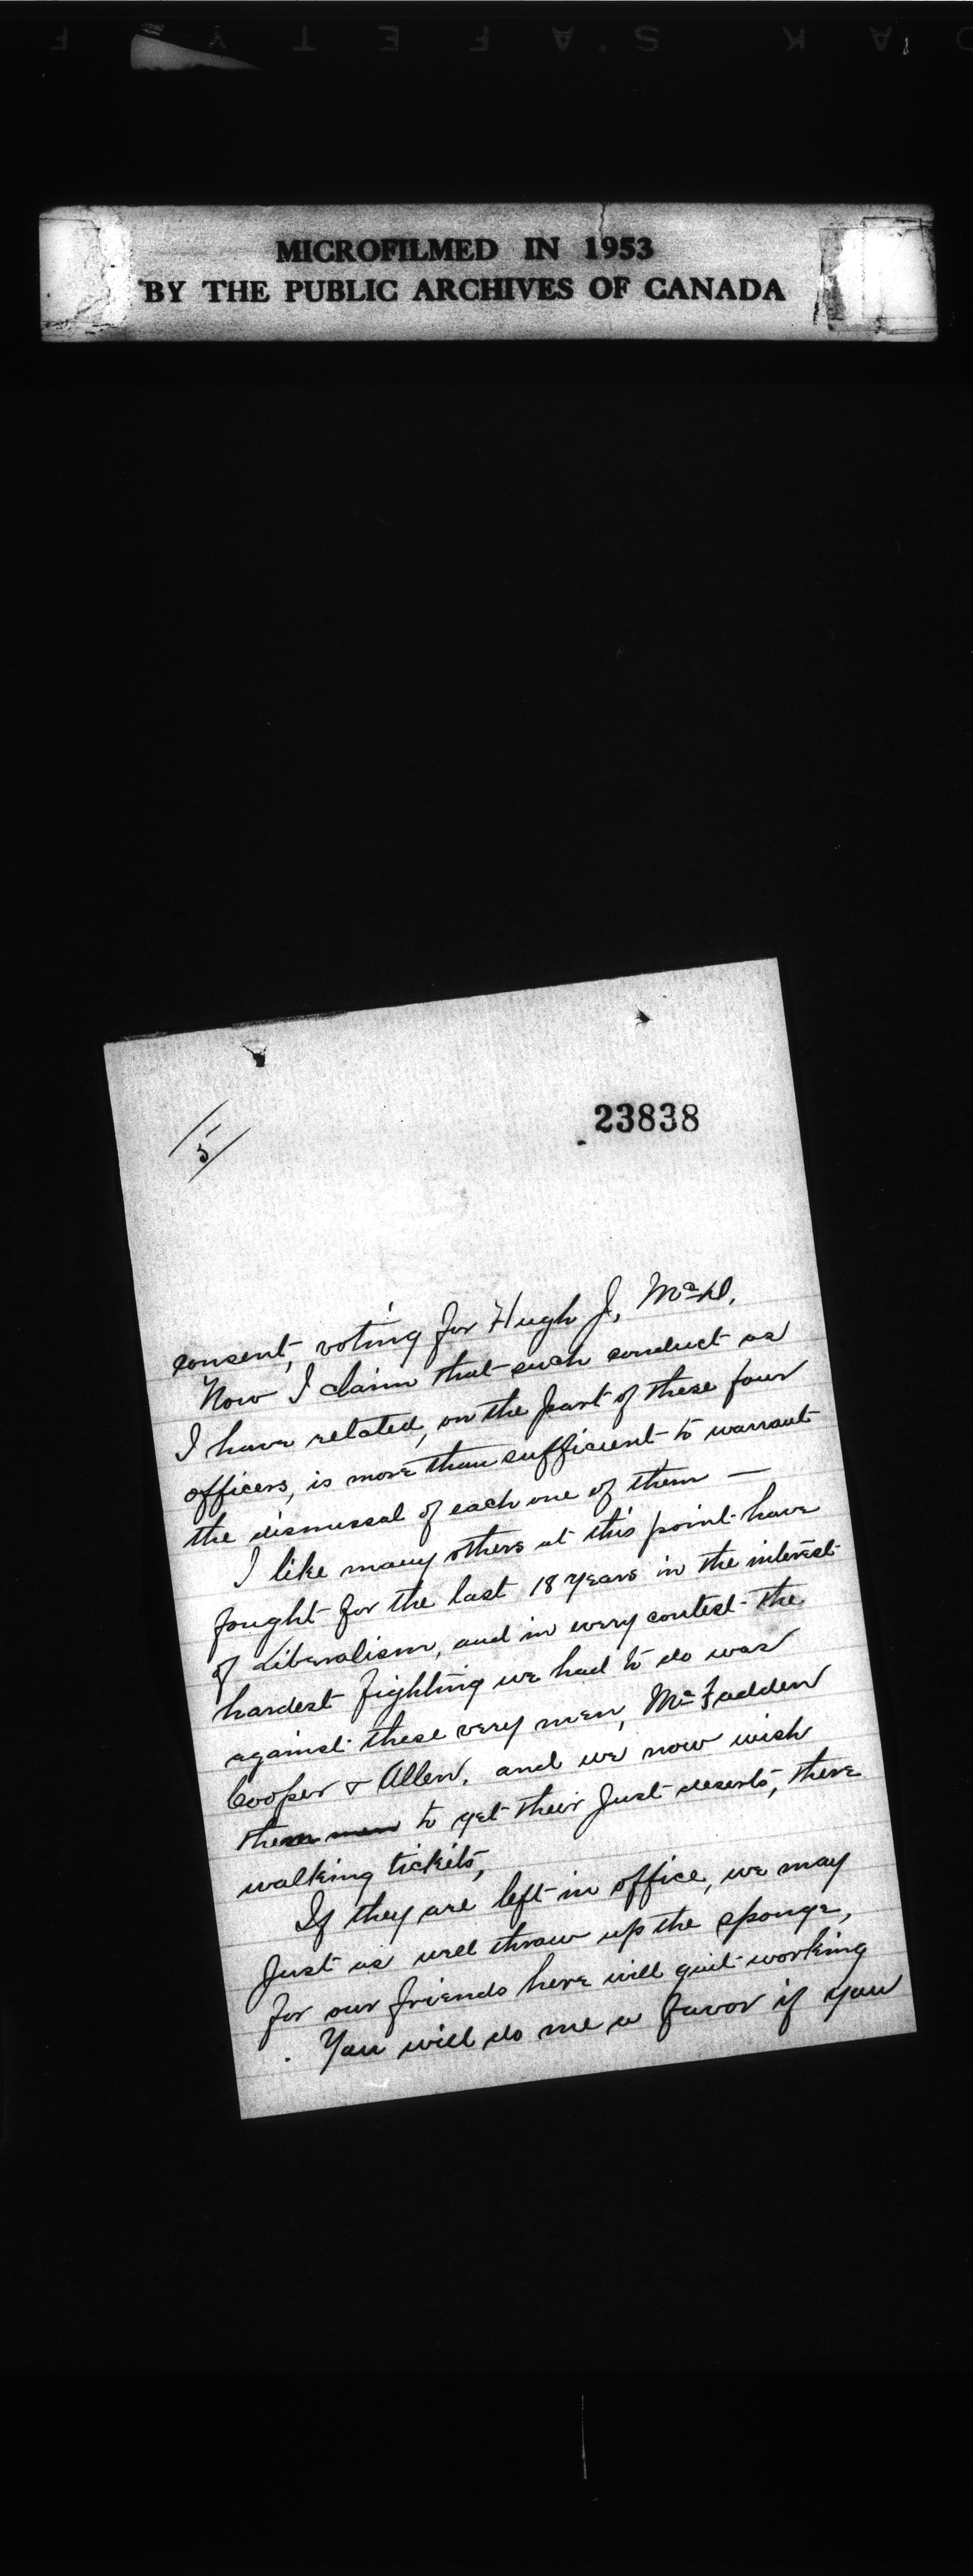 MICROFILMED IN 1953
BY THE PUBLIC ARCHIVES OF CANADA
23838
5
consent, voting for Hugh J, McD.
Now I claim that such conduct as
I have related, on the part of these four
officers, is more than sufficient to warrant
the dismissal of each one of them —
I like many others at this point have
fought for the last 18 years in the interest
of Liberalism, and in every contest the
hardest fighting we had to do was
against these very men, McFadden
Cooper & Allen. and we now wish
them men to get their Just deserts, there
walking tickets,
If they are left in office, we may
Just as well throw up the sponge,
for our friends here will quit working
. You will do me a favor if you